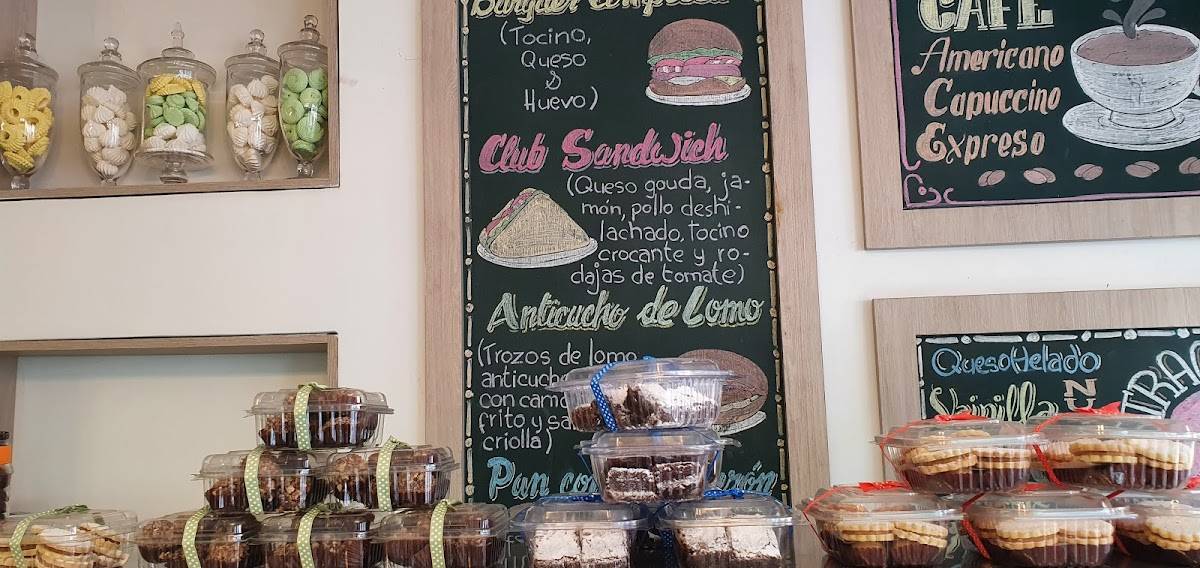 Burguer Completa
(Tocino,
Queso
&
Huevo)
Club Sandwich
(Queso gouda, ja-
món, pollo deshi-
lachado, tocino
crocante y ro-
dajas de tomate)
Anticucho de Lomo
(Trozos de lomo
anticucho
con camo
frito y sa
criolla)
Pan con
CAFÉ
Americano
Capuccino
Expreso
Queso Helado
Vainilla